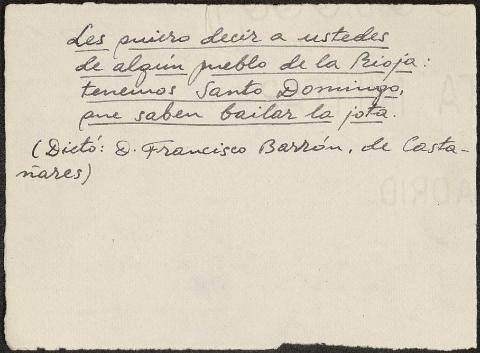 Les quiero decir a ustedes
de algún pueblo de la Rioja:
tenemos Santo Domingo,
que saben bailar la jota.
(Dictó: D. Francisco Barrón, de Casta-
ñares)